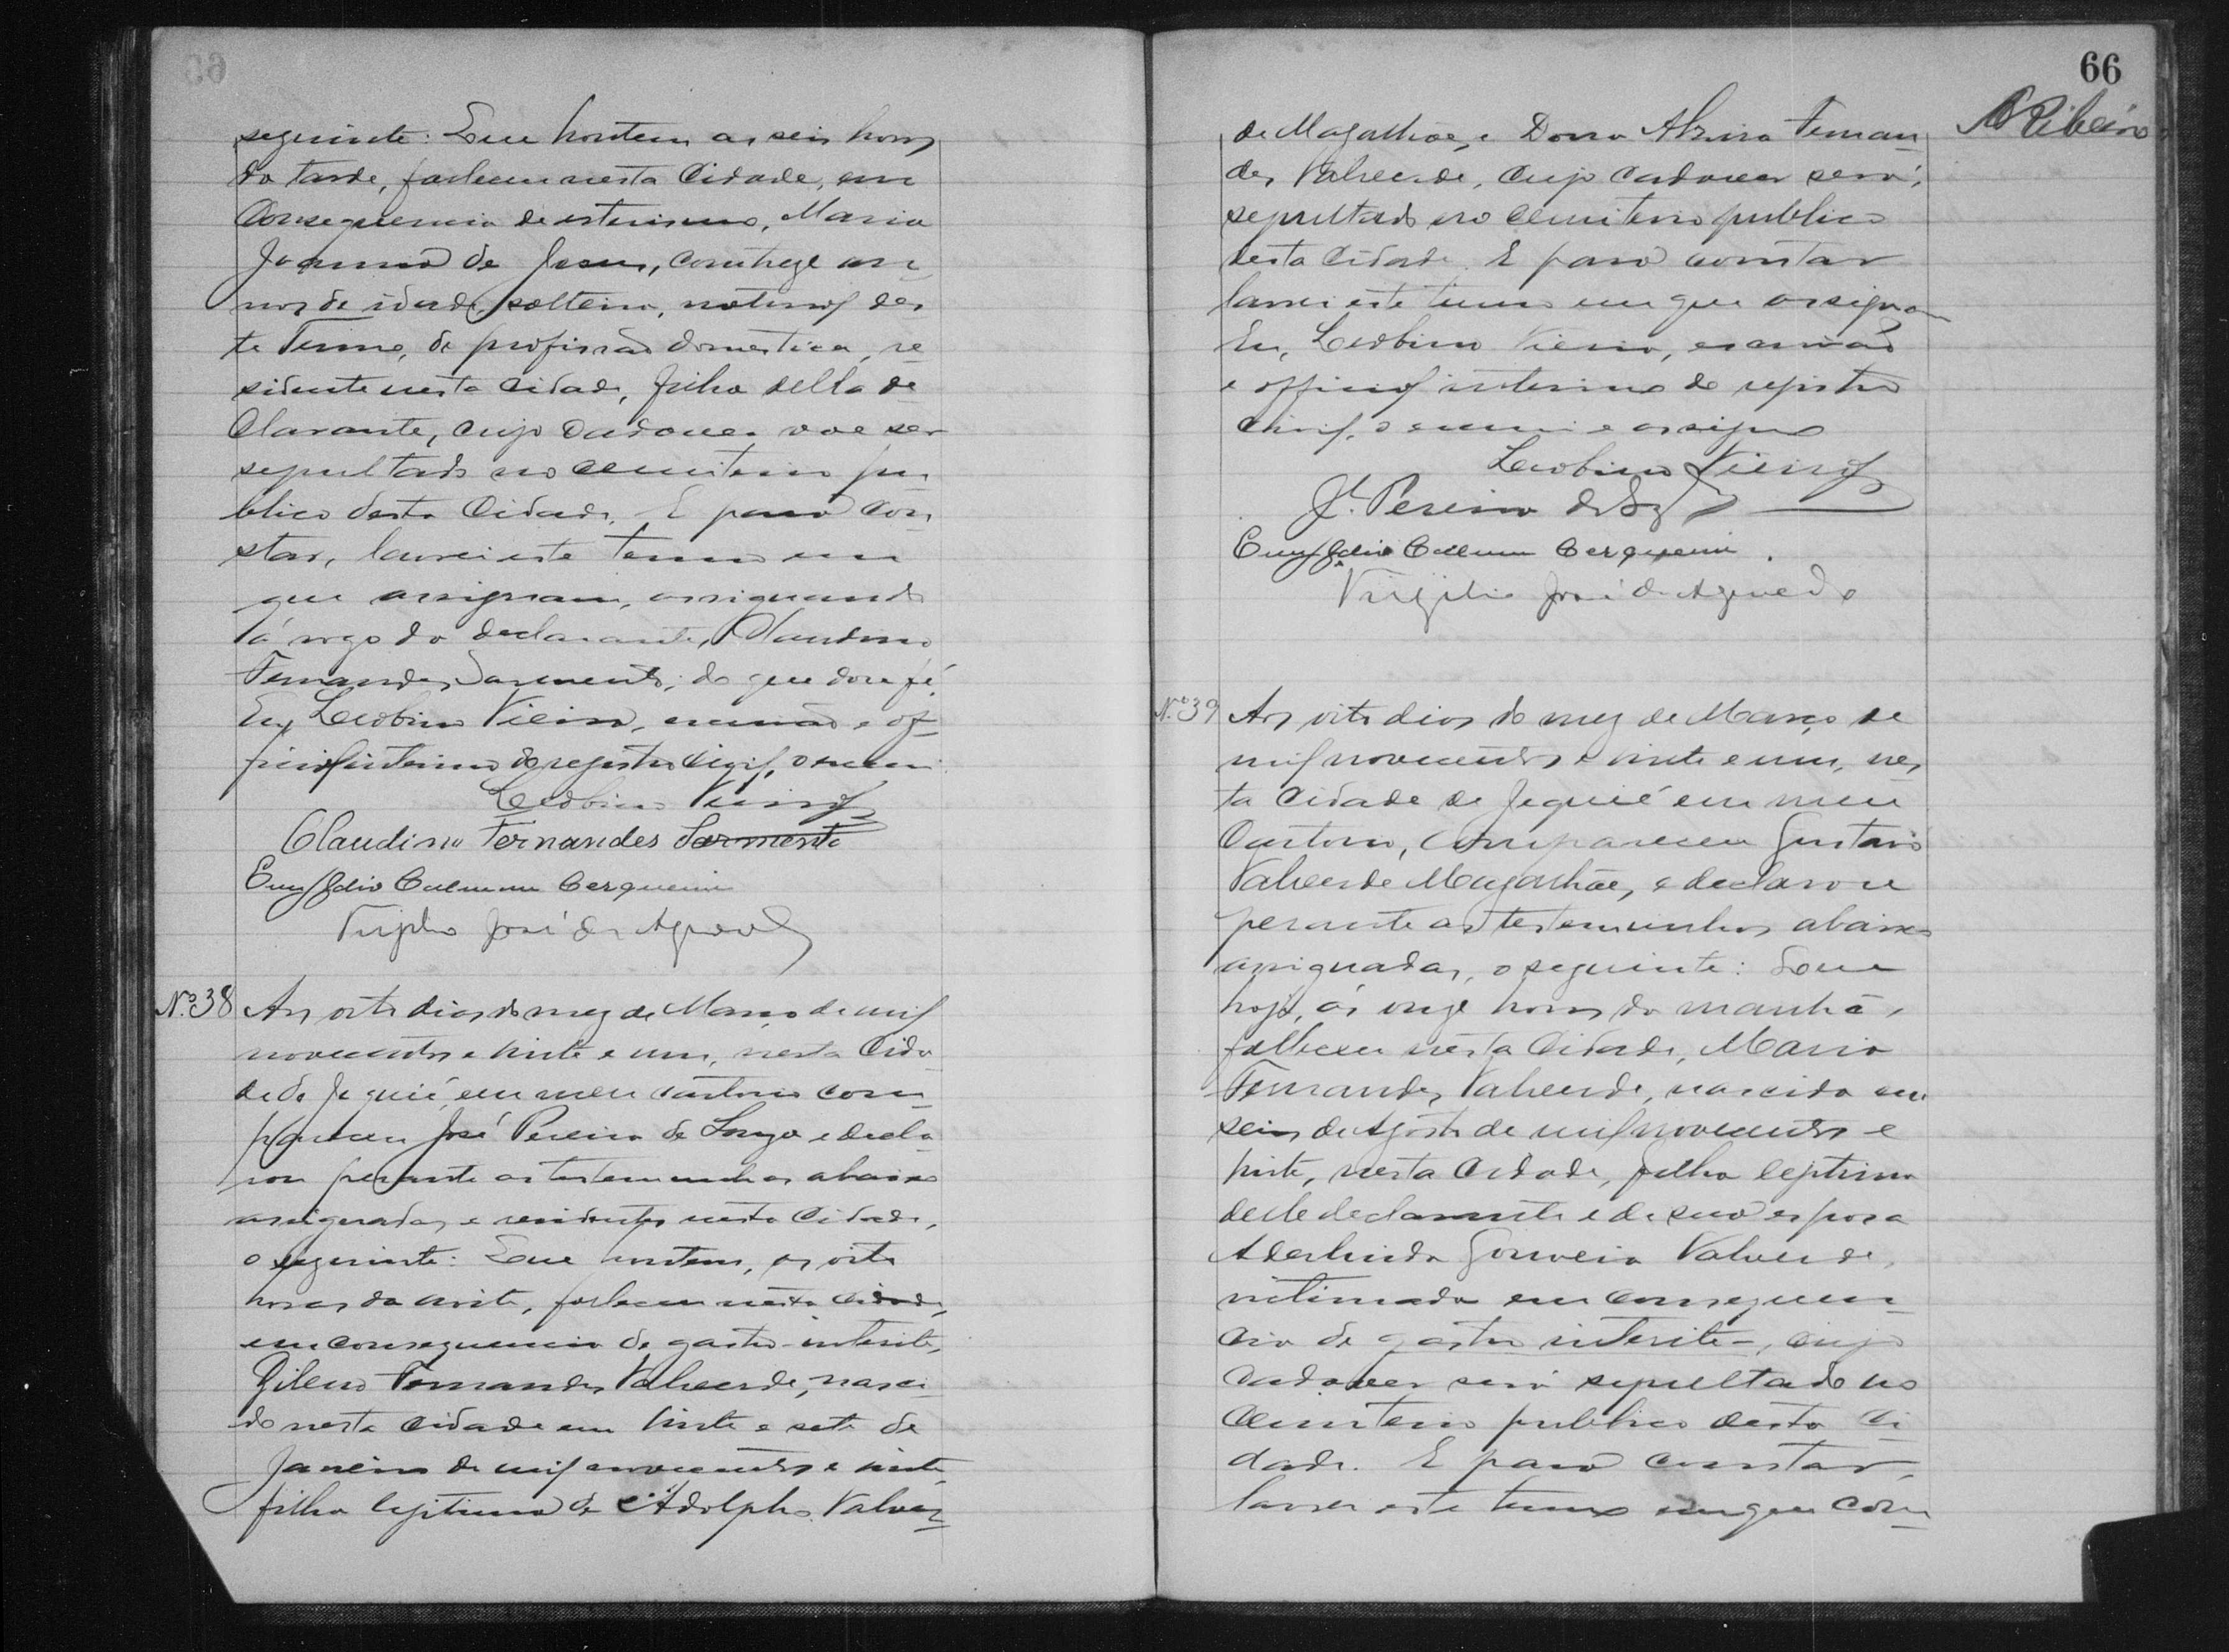 seguinte: Que hontem as seis horas
da tarde, falleceu nesta Cidade, em
Consequencia de esterismo, Maria
Joanna de Jesus, com treze an-
nos de idade, solteira, natural des
te Termo, de profissão domestica, re
sidente nesta cidade, filha della de
Clarante, cujo Cadaver vae ser
sepultado no cemiterio pu
blico desta Cidade. E para Con
star, lavrei este termo em
que assignam, assignando
á rogo da declarante, Claudino
Fernandes Sarmento; do que dou fé.
Eu, Leobino Vieira, escrivão e of-
ficial interino do registro Civil, o escrevi
Leobino Vieira
Claudino Fernandes Sarmento
Calmon Cerqueira
Virgilio José de Azevedo
Nº 38 Aos oito dias do mez de Março de mil
novecentos e vinte e um, nesta Cida
de de Jequié, em meu cartorio com-
pareceu José Pereira de Souza e decla
rou perante as testemunhas abaixo
assignadas e residentes nesta Cidade,
o seguinte: Que hontem, as oito
horas da noite, falleceu nesta cidade,
em consequencia de gastro-interite,
Gileno Fernandes Valverde, nasci
do nesta cidade em vinte e sete de
Janeiro de mil novecentos e vinte,
filho legitimo de Adolpho Valver-
66
de Magalhães e Dona Alzira Fernan
des Valverde, cujo cadaver será,
sepultado no cemiterio publico
desta Cidade. E para constar
lavrei este termo em que assignam
Eu, Leobino Vieira, escrivão
e official interino do registro
Civil, o escrevi e assigno
ARibeiro
Leobino Vieira
Jé Pereira de Sza
Calmon Cerqueira.
Virgilio José de Azevedo
Nº 39 Aos oito dias do mez de Março de
mil novecentos e vinte e um, nes
ta Cidade de Jequié em meu
Cartorio, compareceu Gustavo
Valverde Magalhães, e declarou
perante as testemunhas abaixo
assignadas, o seguinte: Que
hoje, ás onze horas da manhã,
falleceu nesta Cidade, Maria
Fernandes Valverde, nascida em
seis de Agosto de mil novecentos e
vinte, nesta Cidade, filha legitima
delle declarante e de sua esposa
Gouveia Valverde,
victimada em consequen-
cia de gastro interite-, cujo
Cadaver será sepultado no
Cemiterio publico desta Ci
dade. E para constar,
lavrei este termo em que com-